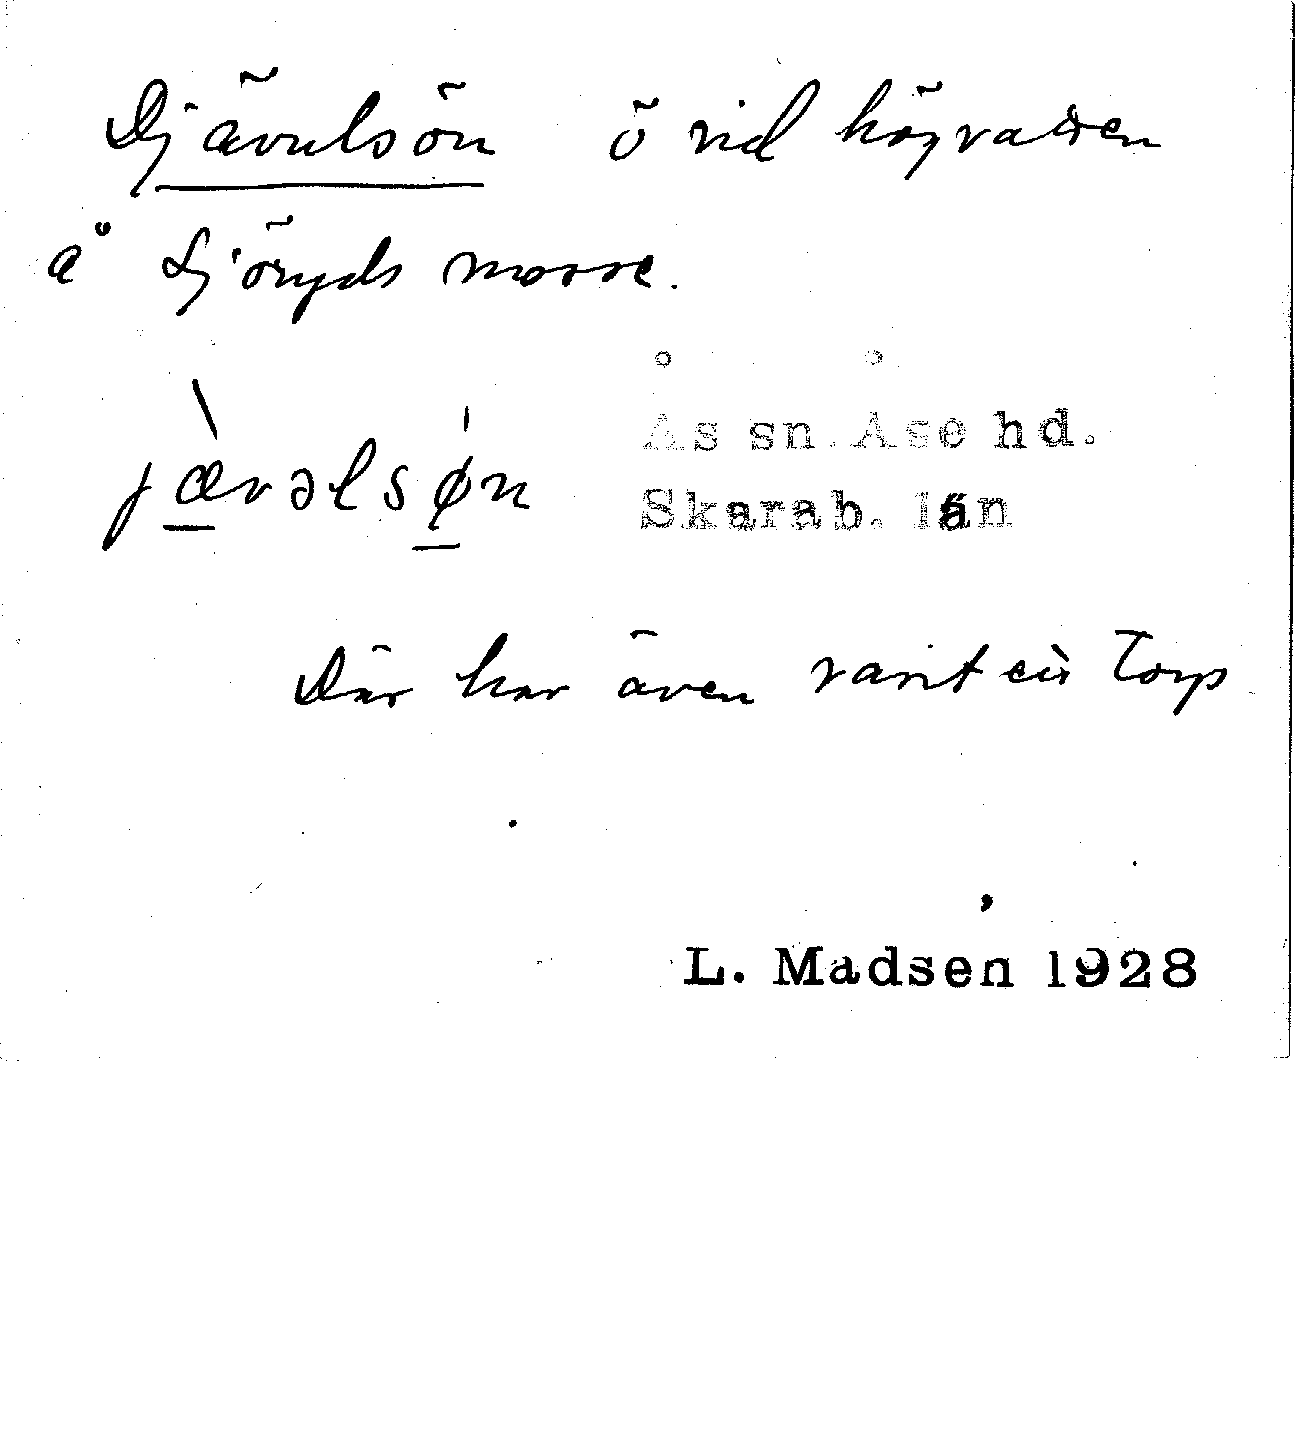 Djävulsön ö vid högvatten
å Sjöryds mosse.
jævəlsøn
Ås sn. Åse hd.
Skarab. län
Där har även varit ett Torp
L. Madsen 1928